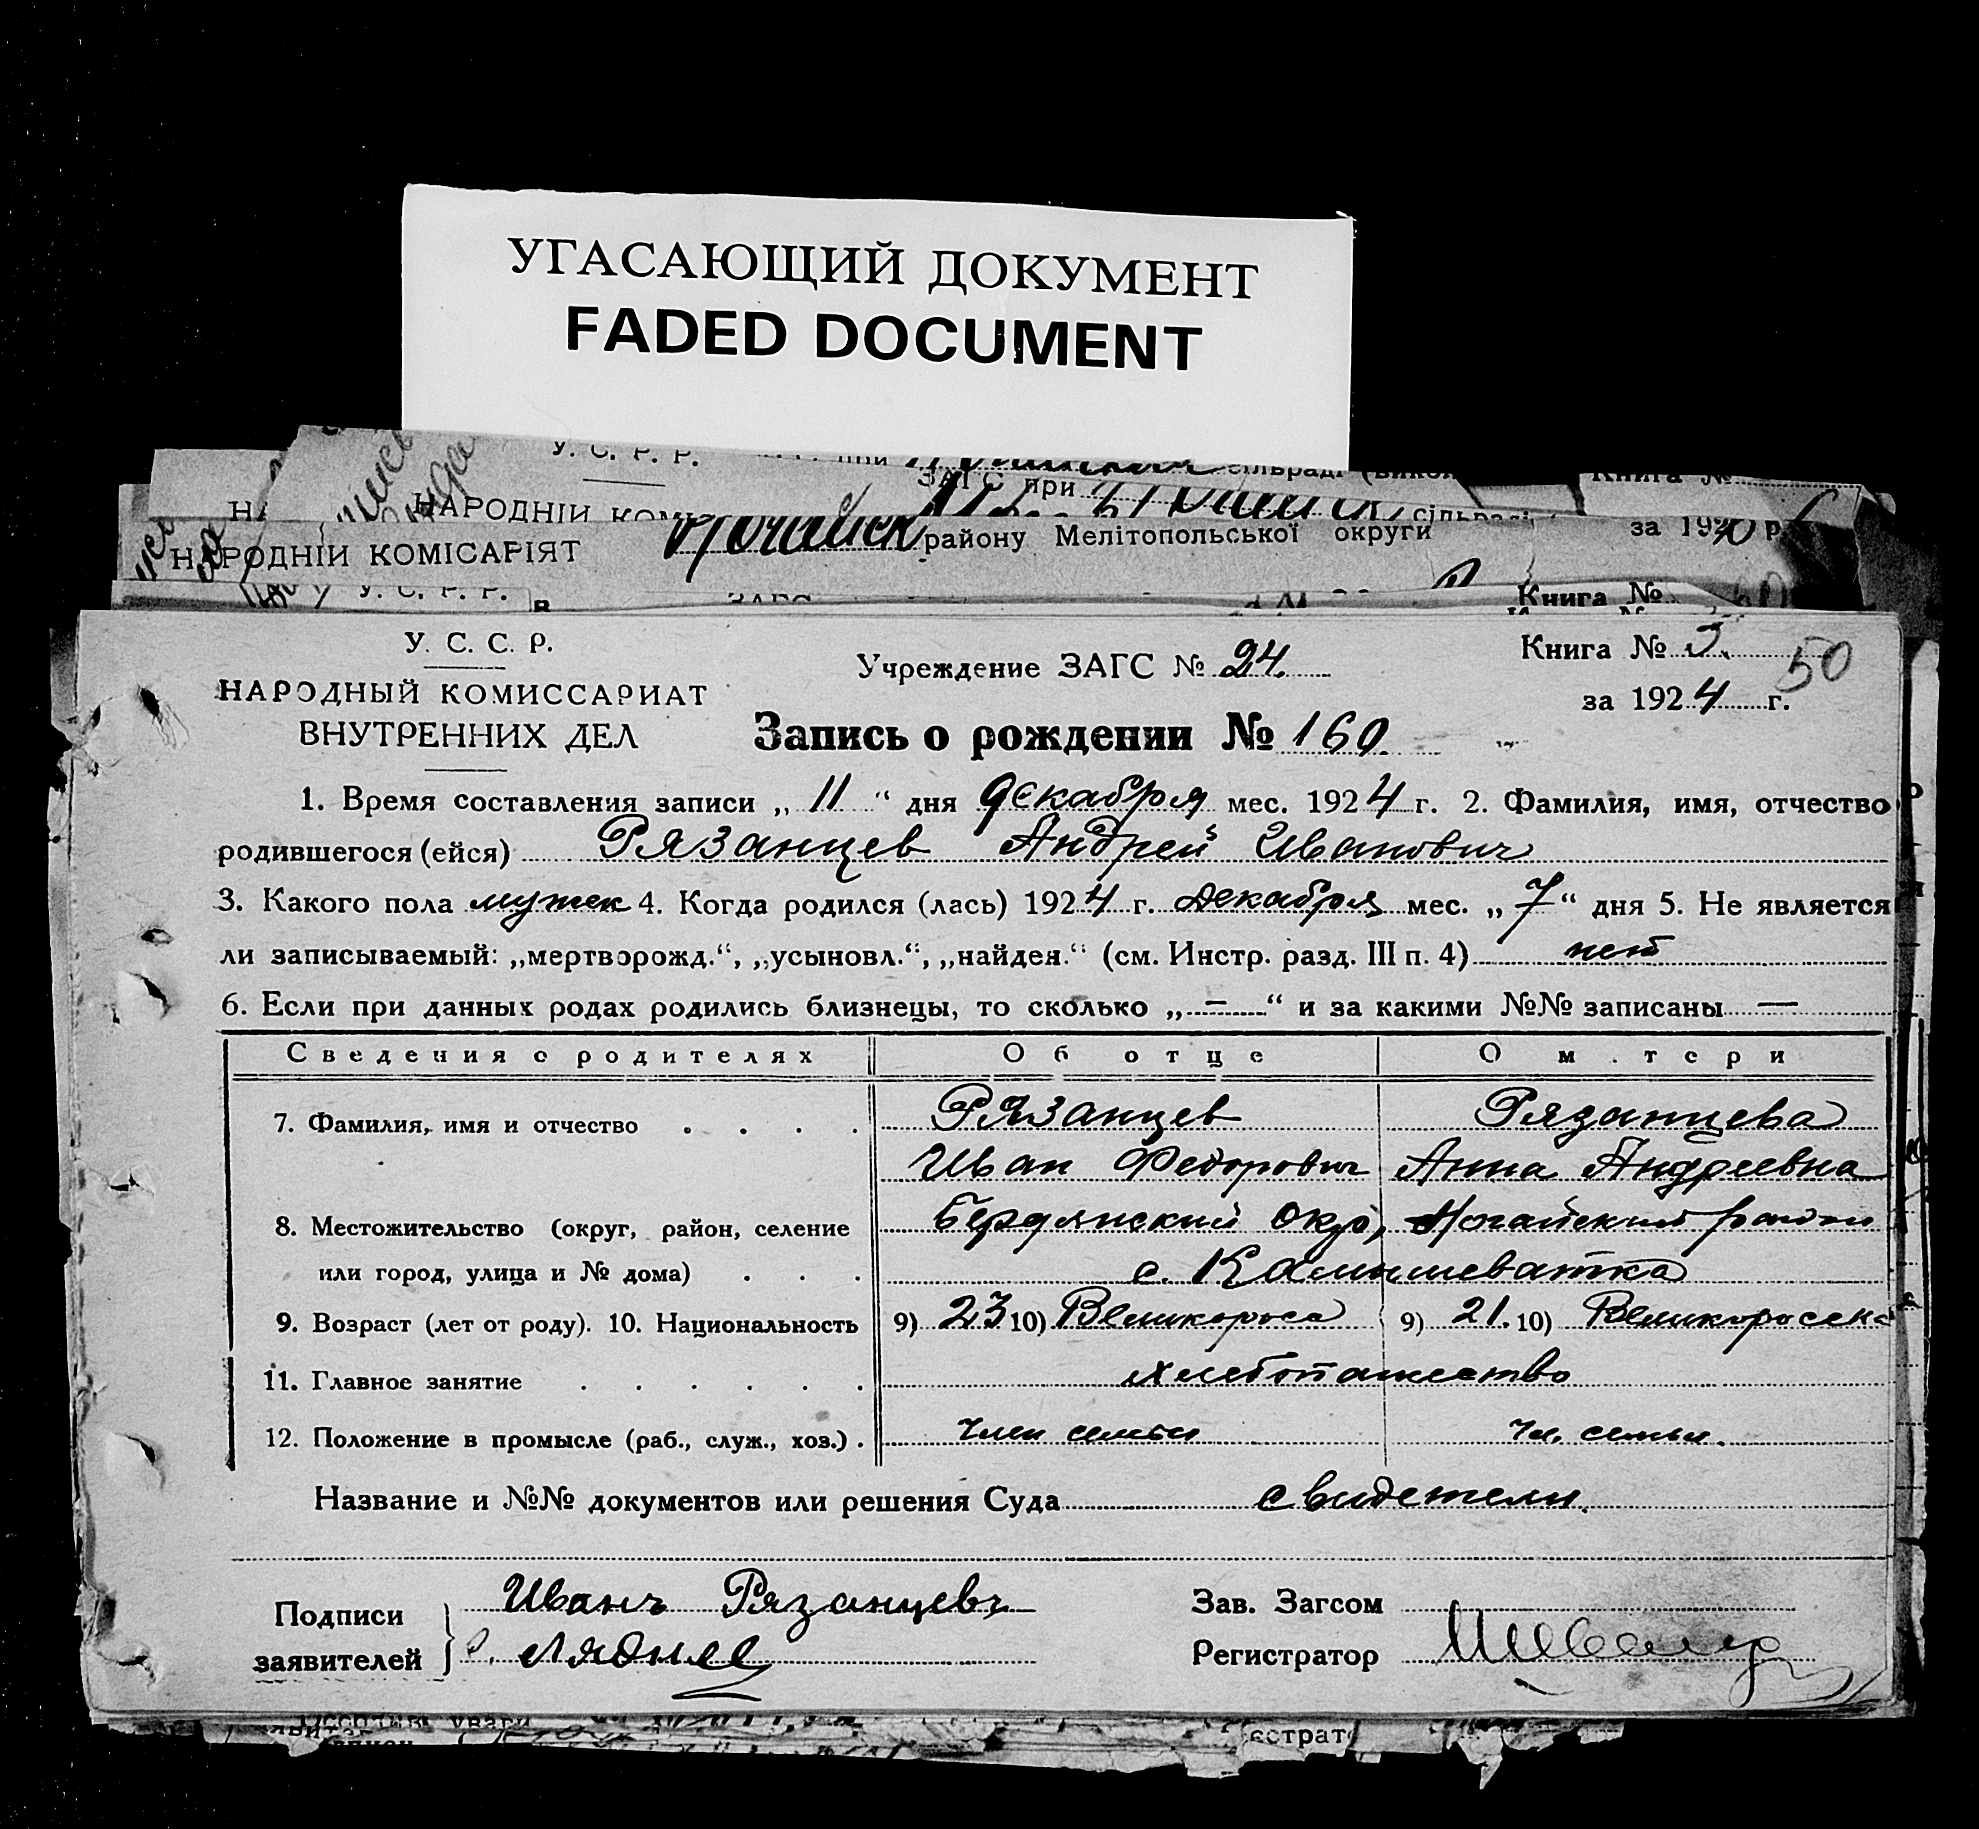 УГАСАЮЩИЙ ДОКУМЕНТ
FADED DOCUMENT
У. С. Р. Р.
ЗАГС при
НАРОДНІЙ
Книга №
НАРОДНІЙ КОМІСАРІЯТ
району Мелітопольської округи
за 192 р.
У. С. Р. Р.
ЗАГС
Книга №
У. С. С. Р.
НАРОДНЫЙ КОМИССАРИАТ
ВНУТРЕННИХ ДЕЛ
Учреждение ЗАГС № 24.
Книга № 3.
50
за 1924 г.
Запись о рождении № 160.
1. Время составления записи „ 11 “ дня декабря мес. 1924 г. 2. Фамилия, имя, отчество
родившегося (ейся) Рязанцев Андрей Иванович
3. Какого пола мужск 4. Когда родился (лась) 1924 г. декабря мес. „ 7 “ дня 5. Не является
ли записываемый: „мертворожд.“, „усыновл.“, „найден.“ (см. Инстр. разд. III п. 4) нет
6. Если при данных родах родились близнецы, то сколько „ — “ и за какими №№ записаны —
Сведения о родителях Об отце О м.тери
7. Фамилия, имя и отчество . . . . Рязанцев Рязанцева
Иван Федорович Анна Андреевна
8. Местожительство (округ, район, селение Бердянский окр, Ногайский район
или город, улица и № дома) . . . с. Камышеватка
9. Возраст (лет от роду). 10. Национальность 9) 23 10) Великоросс 9) 21. 10) Великоросска
11. Главное занятие . . . . . . хлебопашество
12. Положение в промысле (раб., служ., хоз.) . член семьи чл. семьи.
Название и №№ документов или решения Суда свидетели.
Подписи
заявителей
Иванъ Рязанцевъ
Зав. Загсом
Регистратор